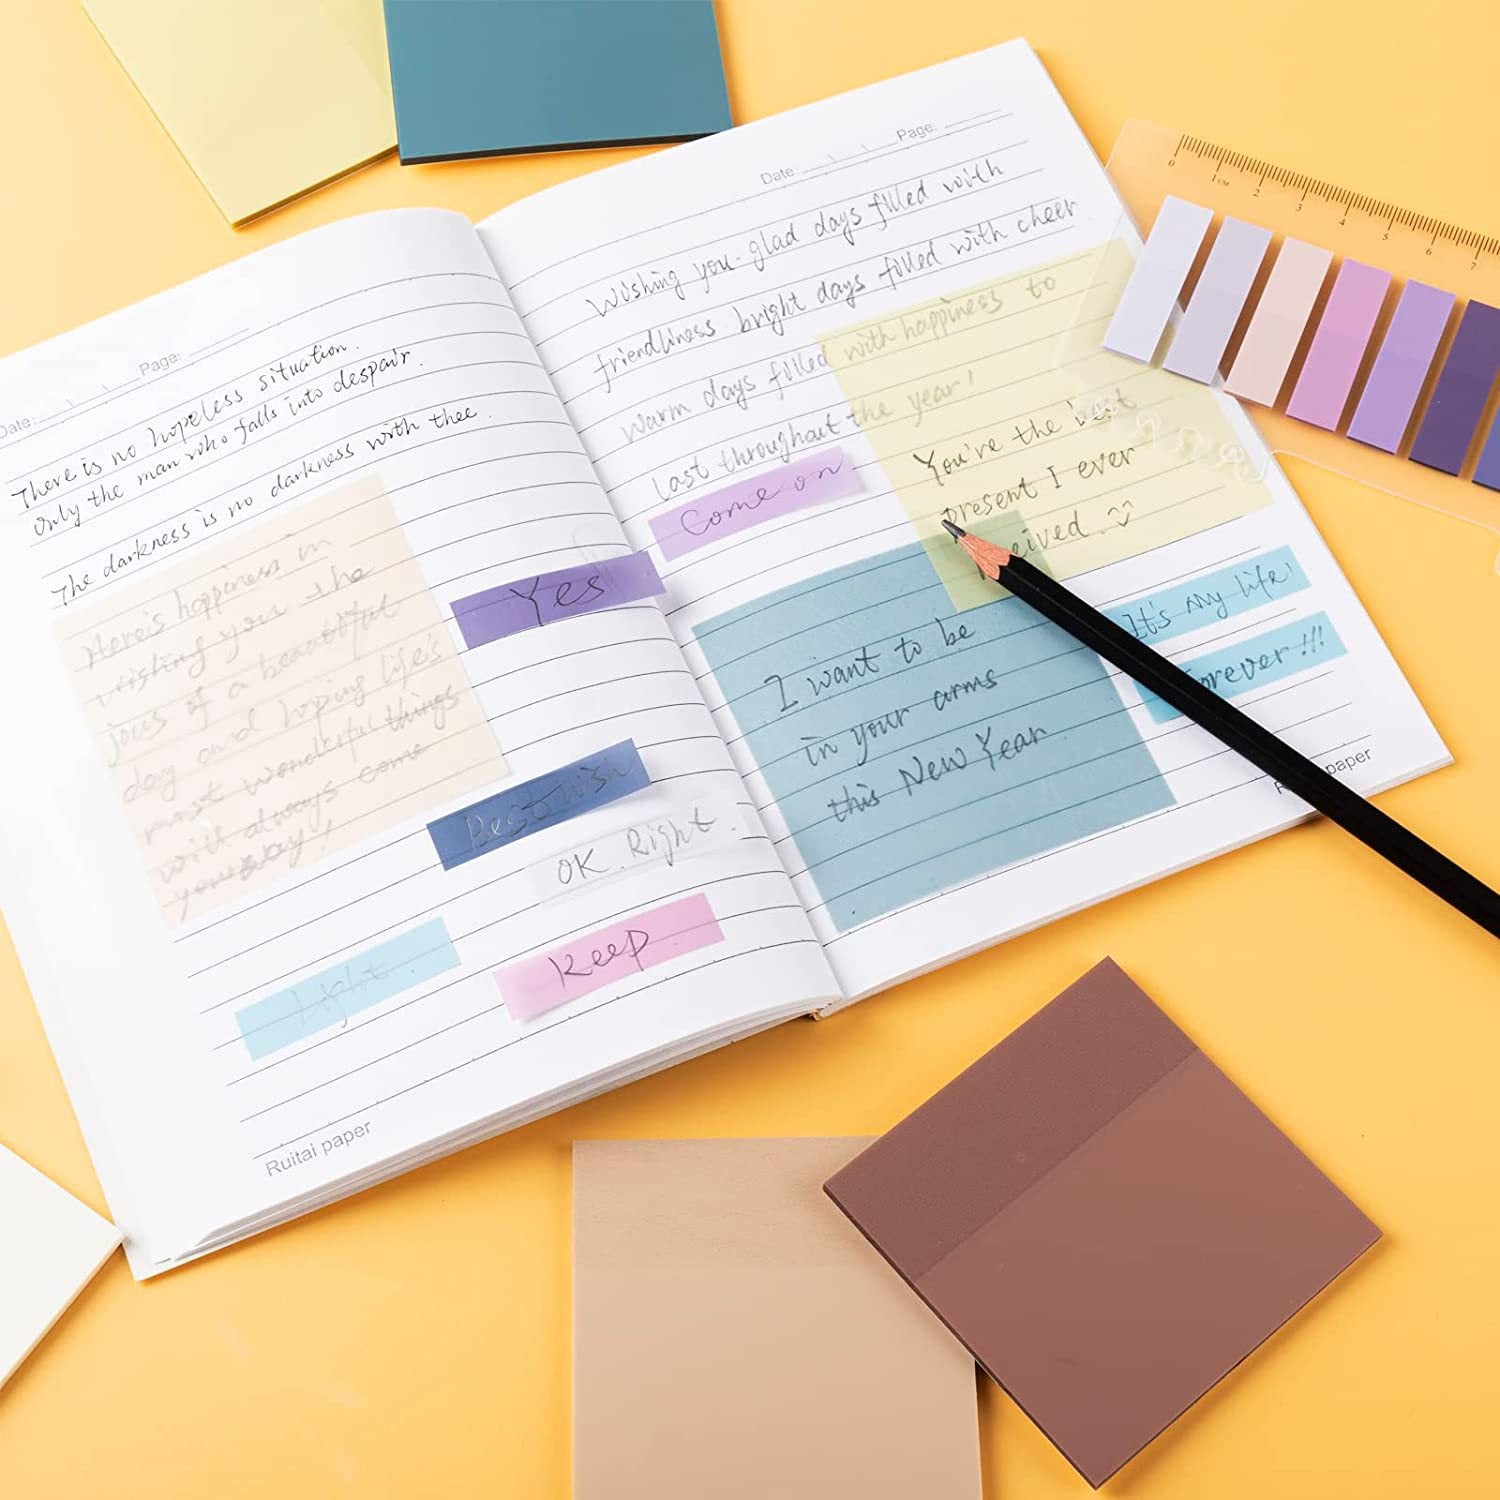 Date: \ \ Page:
There is no hopeless situation.
Only the man who falls into despair.
The darkness is no darkness with thee.
Here's happiness in
wishing you the
joces of a beautiful
day and hoping life's
most wonderful things
will always come
your way!
Yes
Best wish
OK. Right.
Light
Keep
Ruitai paper
Date: \ \ Page:
Wishing you glad days filled with
friendliness bright days filled with cheer
warm days filled with happiness to
last throughout the year!
Come on
You're the best
present I ever
received.
I want to be
in your arms
this New Year.
It's my life!
Forever!!!
paper
0 1 CM 2 3 4 5 6 7